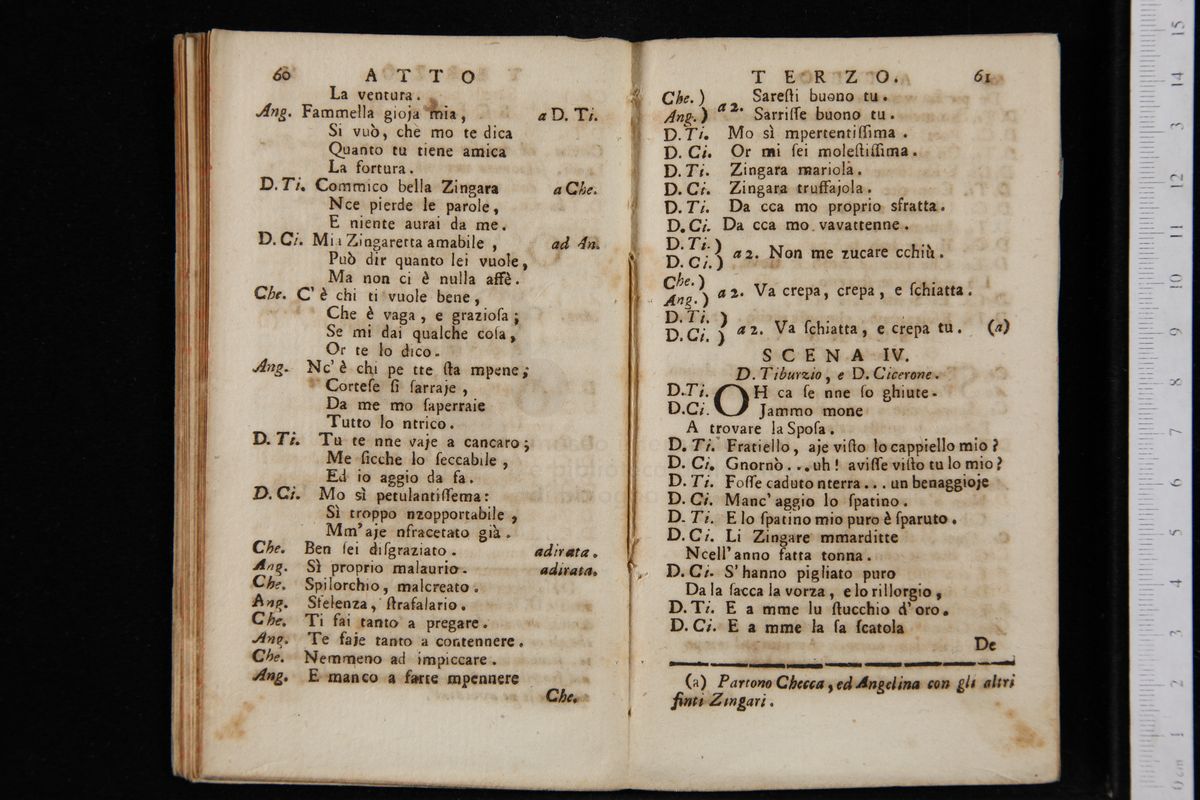 60 ATTO
La ventura.
Ang. Fammella gioja mia, a D. Ti.
Si vuò, che mo te dica
Quanto tu tiene amica
La fortura.
D. Ti. Commico bella Zingara a Che.
Nce pierde le parole,
E niente aurai da me.
D. Ci. Mia Zingaretta amabile, ad An.
Può dir quanto lei vuole,
Ma non ci è nulla affè.
Che. C'è chi ti vuole bene,
Che è vaga, e grazioſa;
Se mi dai qualche coſa,
Or te lo dico.
Ang. Nc'è chi pe tte ſta mpene;
Corteſe ſi ſarraje,
Da me mo ſaperraie
Tutto lo ntrico.
D. Ti. Tu te nne vaje a cancaro;
Me ſicche lo ſeccabile,
Ed io aggio da fa.
D. Ci. Mo sì petulantiſſema:
Sì troppo nzopportabile,
Mm'aje nfracetato già.
Che. Ben ſei diſgraziato. adirata.
Ang. Sì proprio malaurio. adirata.
Che. Spilorchio, malcreato.
Ang. Sfelenza, ſtrafalario.
Che. Ti fai tanto a pregare.
Ang. Te faje tanto a contennere.
Che. Nemmeno ad impiccare.
Ang. E manco a farte mpennere
Che.
TERZO. 61
Che. ) Sareſti buono tu.
Ang. ) a 2. Sarriſſe buono tu.
D. Ti. Mo sì mpertentiſſima.
D. Ci. Or mi ſei moleſtiſſima.
D. Ti. Zingara mariola.
D. Ci. Zingara truffajola.
D. Ti. Da cca mo proprio sfratta.
D. Ci. Da cca mo vavattenne.
D. Ti. )
D. Ci. ) a 2. Non me zucare cchiù.
Che. )
Ang. ) a 2. Va crepa, crepa, e ſchiatta.
D. Ti. )
D. Ci. ) a 2. Va ſchiatta, e crepa tu. (a)
SCENA IV.
D. Tiburzio, e D. Cicerone.
D. Ti. OH ca ſe nne ſo ghiute.
D. Ci. Jammo mone
A trovare la Spoſa.
D. Ti. Fratiello, aje viſto lo cappiello mio?
D. Ci. Gnornò... uh! aviſſe viſto tu lo mio?
D. Ti. Foſſe caduto nterra... un benaggioje
D. Ci. Manc'aggio lo ſpatino.
D. Ti. E lo ſpatino mio puro è ſparuto.
D. Ci. Li Zingare mmarditte
Ncell'anno fatta tonna.
D. Ci. S'hanno pigliato puro
Da la ſacca la vorza, e lo rillorgio,
D. Ti. E a mme lu ſtucchio d'oro.
D. Ci. E a mme la ſa ſcatola
De
(a) Partono Checca, ed Angelina con gli altri
finti Zingari.